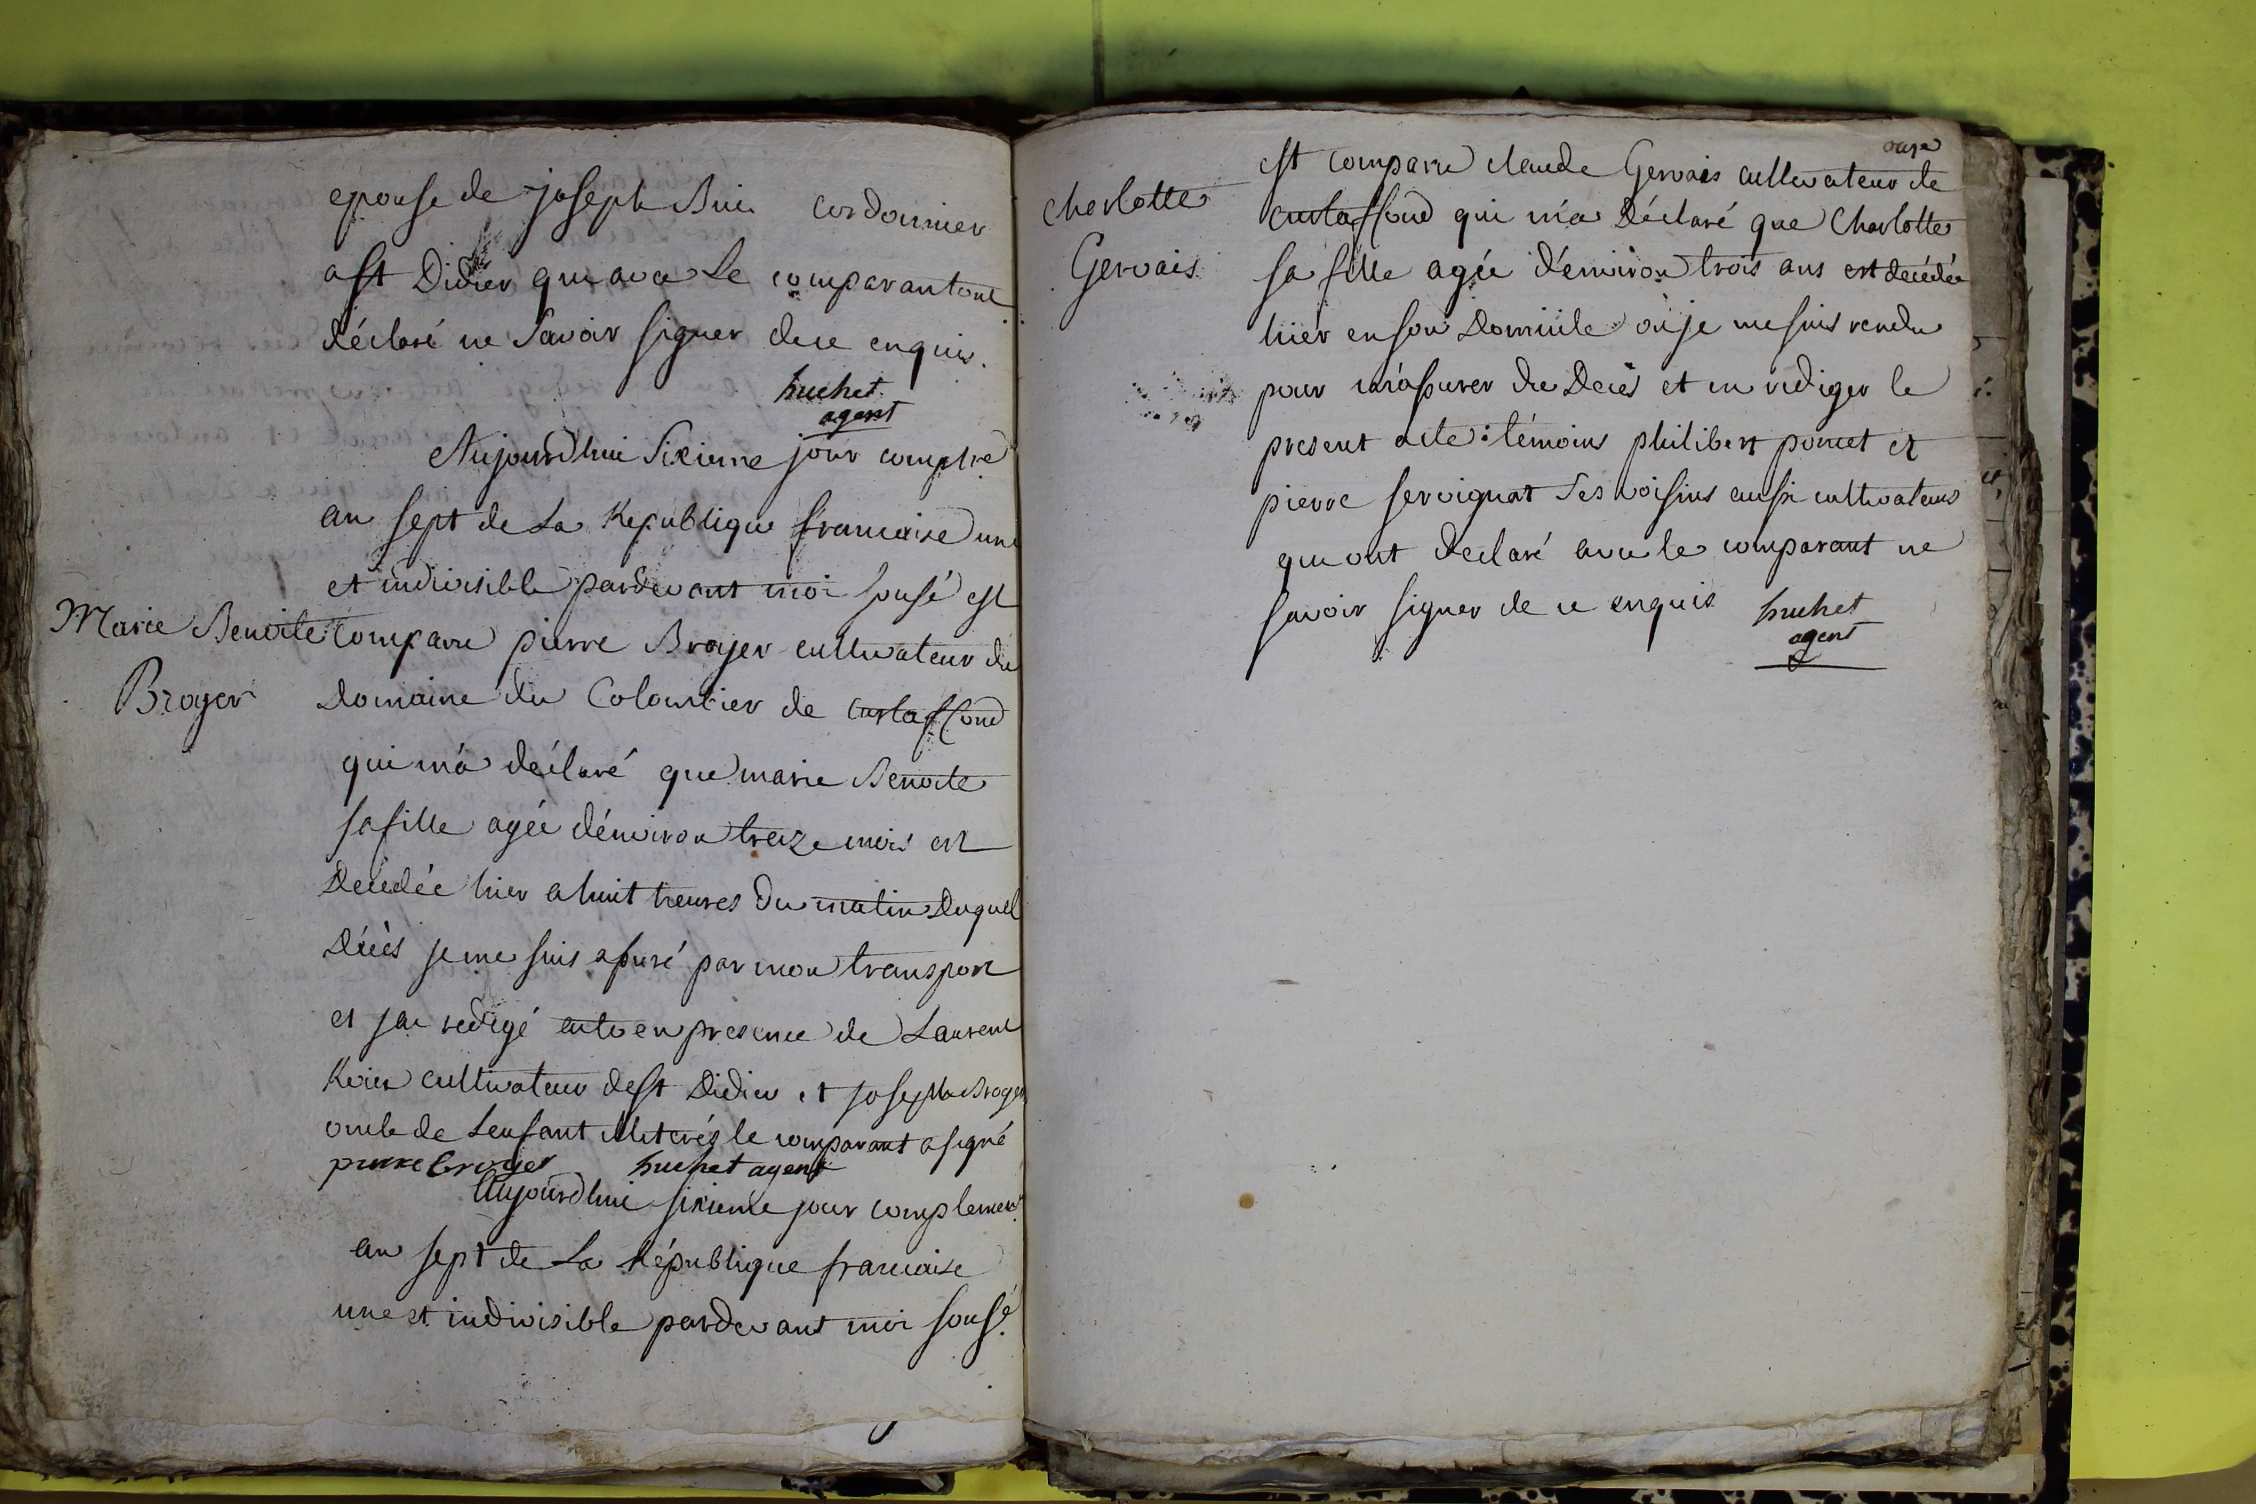 epouse de joseph Buis cordonnier
a st Didier qui avec le comparant ont
déclaré ne savoir signer de ce enquis.
huchet
agent
Aujourd'hui sixieme jour complre
an sept de la Republique francaise une
et indivisible pardevant moi sousé est
Marie Benoite
Broyer
comparu pierre Broyer cultivateur du
Domaine du Colombier de Curtaffond
qui m'a déclaré que marie Benoite
sa fille agée d'environ treize mois est
Décédée hier a huit heures du matin Duquel
Décès je me suis assuré par mon transport
et j'ai redigé acte en presence de Laurent
cultivateur de st Didier et joseph Broyer
oncle de l'enfant illiterés le comparant a signé
pierre broyer huchet agent
Aujourd'hui sixieme jour complement
an sept de la République francaise
une et indivisible pardevant moi sousé
onze
Charlotte
Gervais
est comparu claude Gervais cultivateur de
Curtaffond qui m'a Déclaré que Charlotte
sa fille agée d'environ trois ans est decédée
hier en son Domicile où je me suis rendu
pour m'assurer du Decès et en rediger le
present acte : témoins philibert poncet et
pierre servignat ses voisins aussi cultivateurs
qui ont declaré avec le comparant ne
savoir signer de ce enquis
huchet
agent